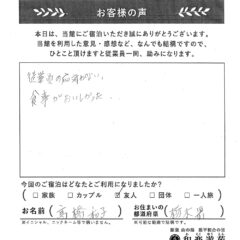 お客様の声
本日は、当館にご宿泊いただき誠にありがとうございます。
当館を利用した意見・感想など、なんでも結構ですので、
ひとこと頂けますと従業員一同、励みになります。
従業員の応対が良い、
食事がおいしかった。
今回のご宿泊はどなたとご利用になりましたか?
□家族 □カップル ☑友人 □団体 □一人旅
お名前(高橋 和子)
お住まいの都道府県(栃木県)
※イニシャル、ペンネームでも構いません。